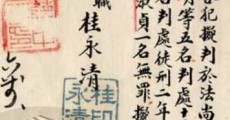 犯擬判於法尚
等五名判處十
名判處徒刑二年
貞一名無罪擬
職
桂永清
桂印
永清